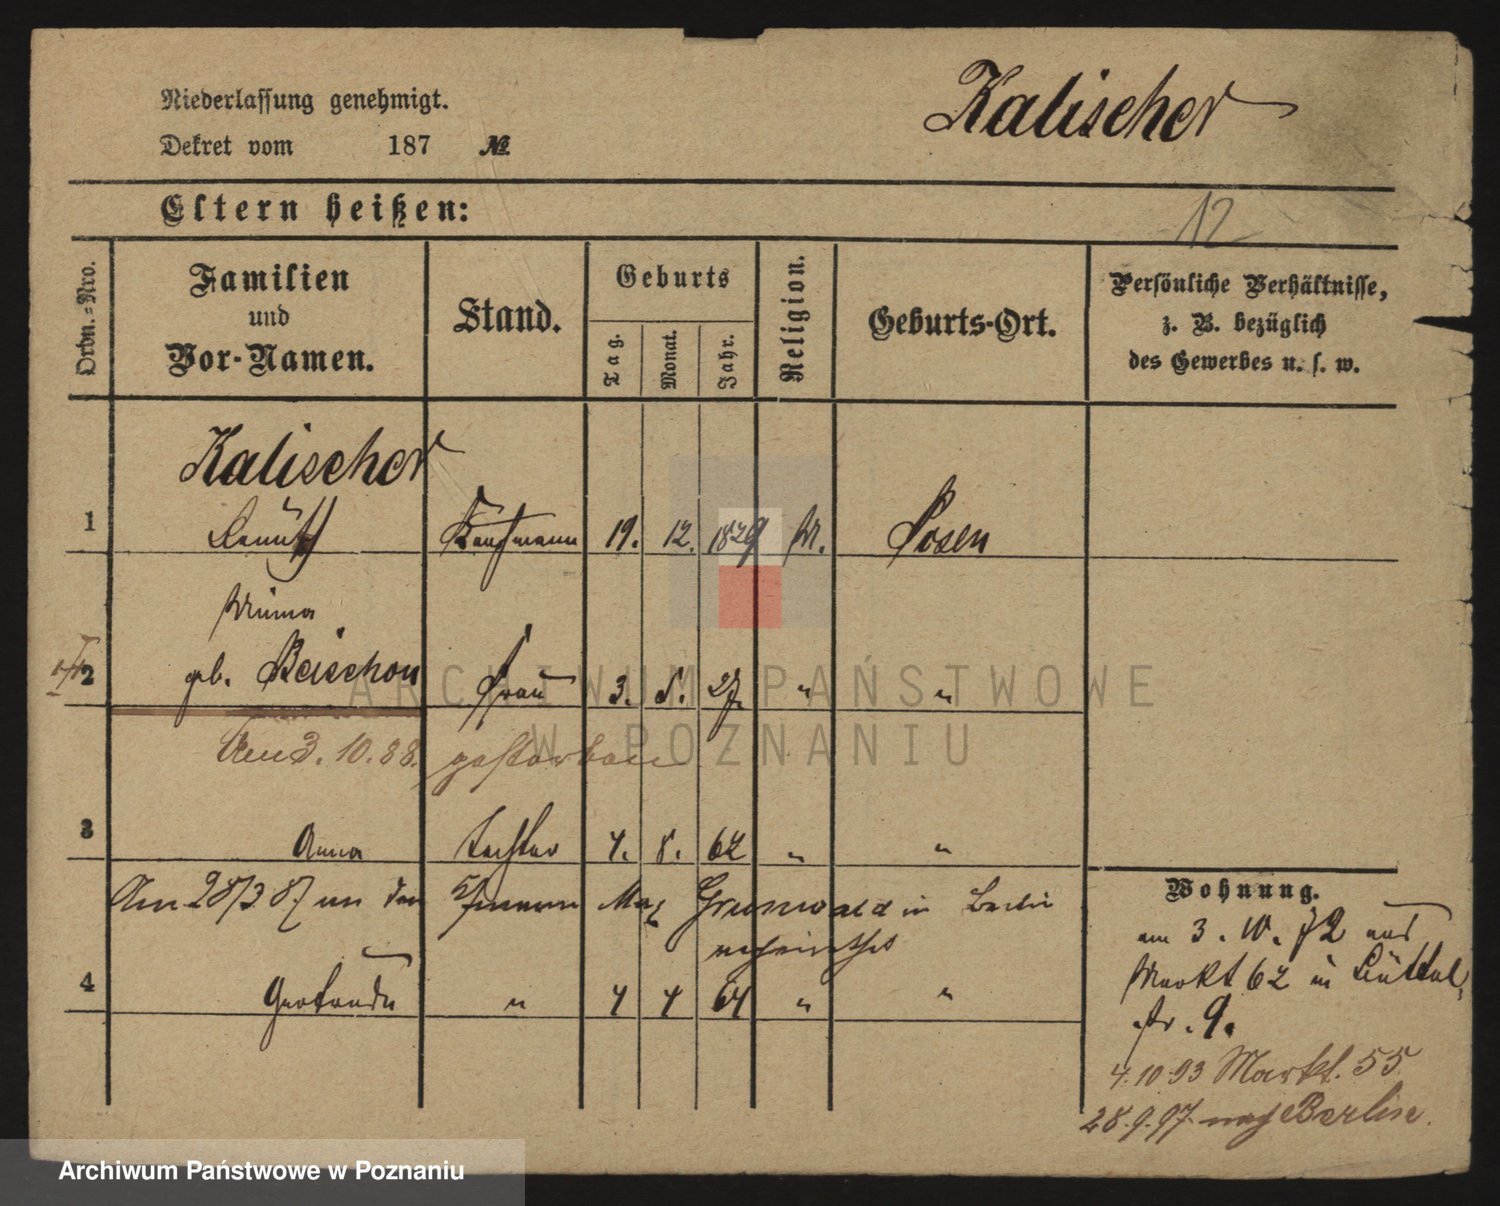 Niederlassung genehmigt.
Dekret vom 187 №
Kalischer
Eltern heißen:
12
Ordn.-Nro.
Familien
und
Vor-Namen.
Stand.
Geburts
Tag.
Monat.
Jahr.
Religion.
Geburts-Ort.
Persönliche Verhältnisse,
z. B. bezüglich
des Gewerbes u. s. w.
Kalischer
1 Kaufmann 19. 12. 1829 M. Posen
Minna
2 geb. Beischon Frau 3. 8. 27. " "
Am 3. 10. 88. gestorben
3 Anna Tochter 4. 8. 62 " "
Am 28/3 87 an den Max Grunwald in Berlin
verheirathet
4 Gertrude " 4 4 64 " "
Wohnung.
am 3. 10. 72 aus
Markt 62 in Büttel
str. 9.
4.10.93 Markt. 55.
28.9.97. nach Berlin.
ARCHIWUM PAŃSTWOWE
W POZNANIU
Archiwum Państwowe w Poznaniu